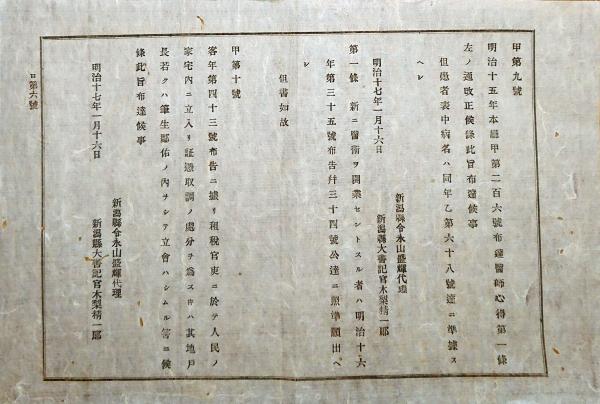 甲第九號
明治十五年本縣甲第二百六號布達醫師心得第一條
左ノ通改正候條此旨布達候事
但患者表中病名ハ同年乙第六十八號達ニ準據ス
ヘシ
明治十七年一月十六日
新潟縣令永山盛輝代理
新潟縣大書記官木梨精一郎
第一條 新ニ醫術ヲ開業セントスル者ハ明治十六
年第三十五號布告幷三十四號公達ニ照準願出ヘ
シ
但書如故
甲第十號
客年第四十三號布告ニ據リ租稅官吏ニ於テ人民ノ
家宅內ニ立入リ証憑取調ノ處分ヲ爲ストキハ其地戶
長若クハ筆生鄰佑ノ內ヲシテ立會ハシムル筈ニ候
條此旨布達候事
明治十七年一月十六日
新潟縣令永山盛輝代理
新潟縣大書記官木梨精一郎
第六號